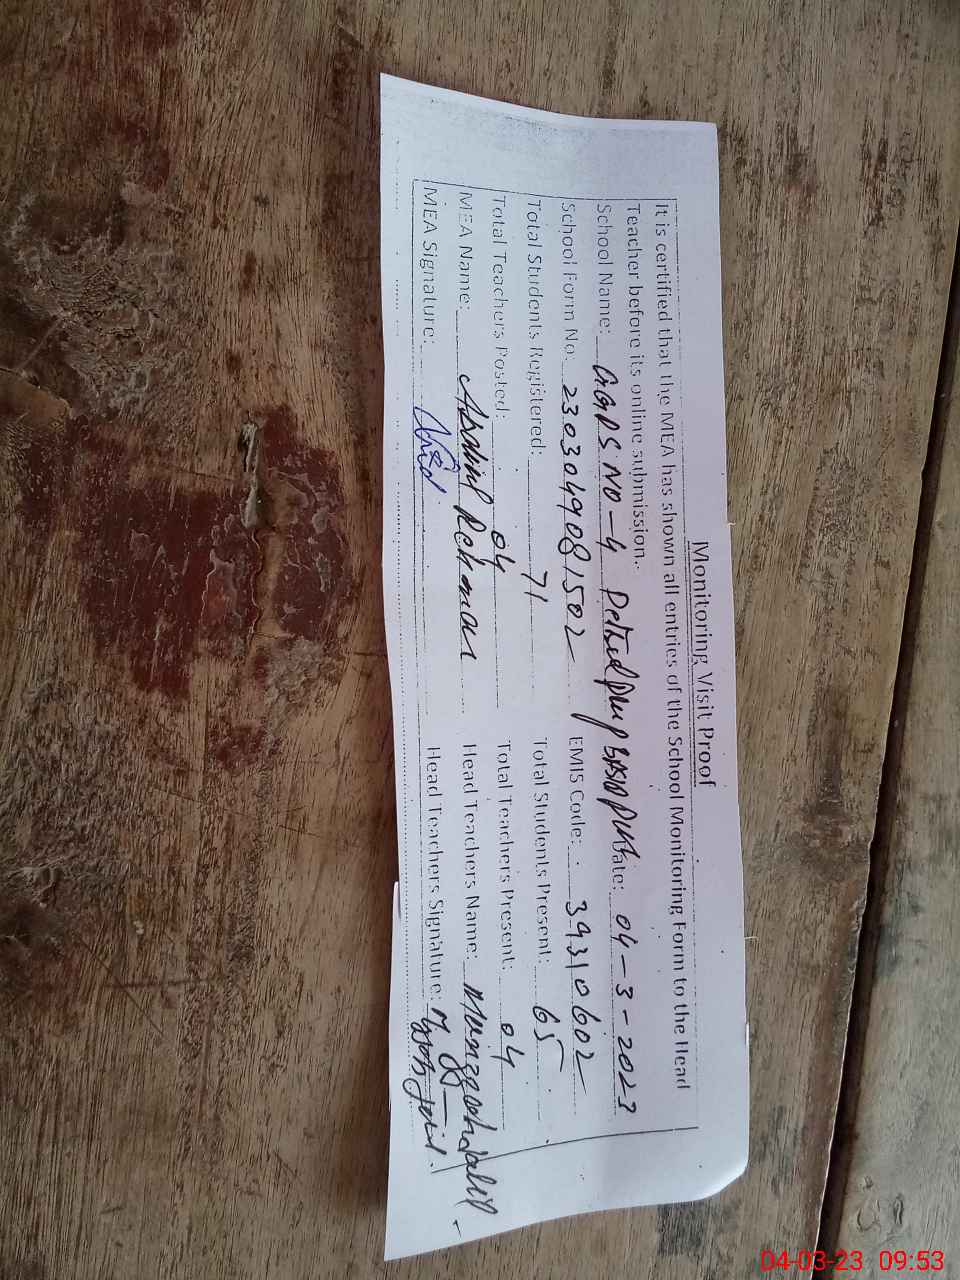 Monitoring Visit Proof
It is certified that the MEA has shown all entries of the School Monitoring Form to the Head
Teacher before its online submission.
School Name: GGPS NO-4 Date: 04-3-2023
School Form No: 2303049081502 EMIS Code: 39310602
Total Students Registered: 71 Total Students Present: 65
Total Teachers Posted: 04 Total Teachers Present: 04
MEA Name: Rehman Head Teachers Name:
MEA Signature: Head Teachers Signature:
04-03-23 09:53